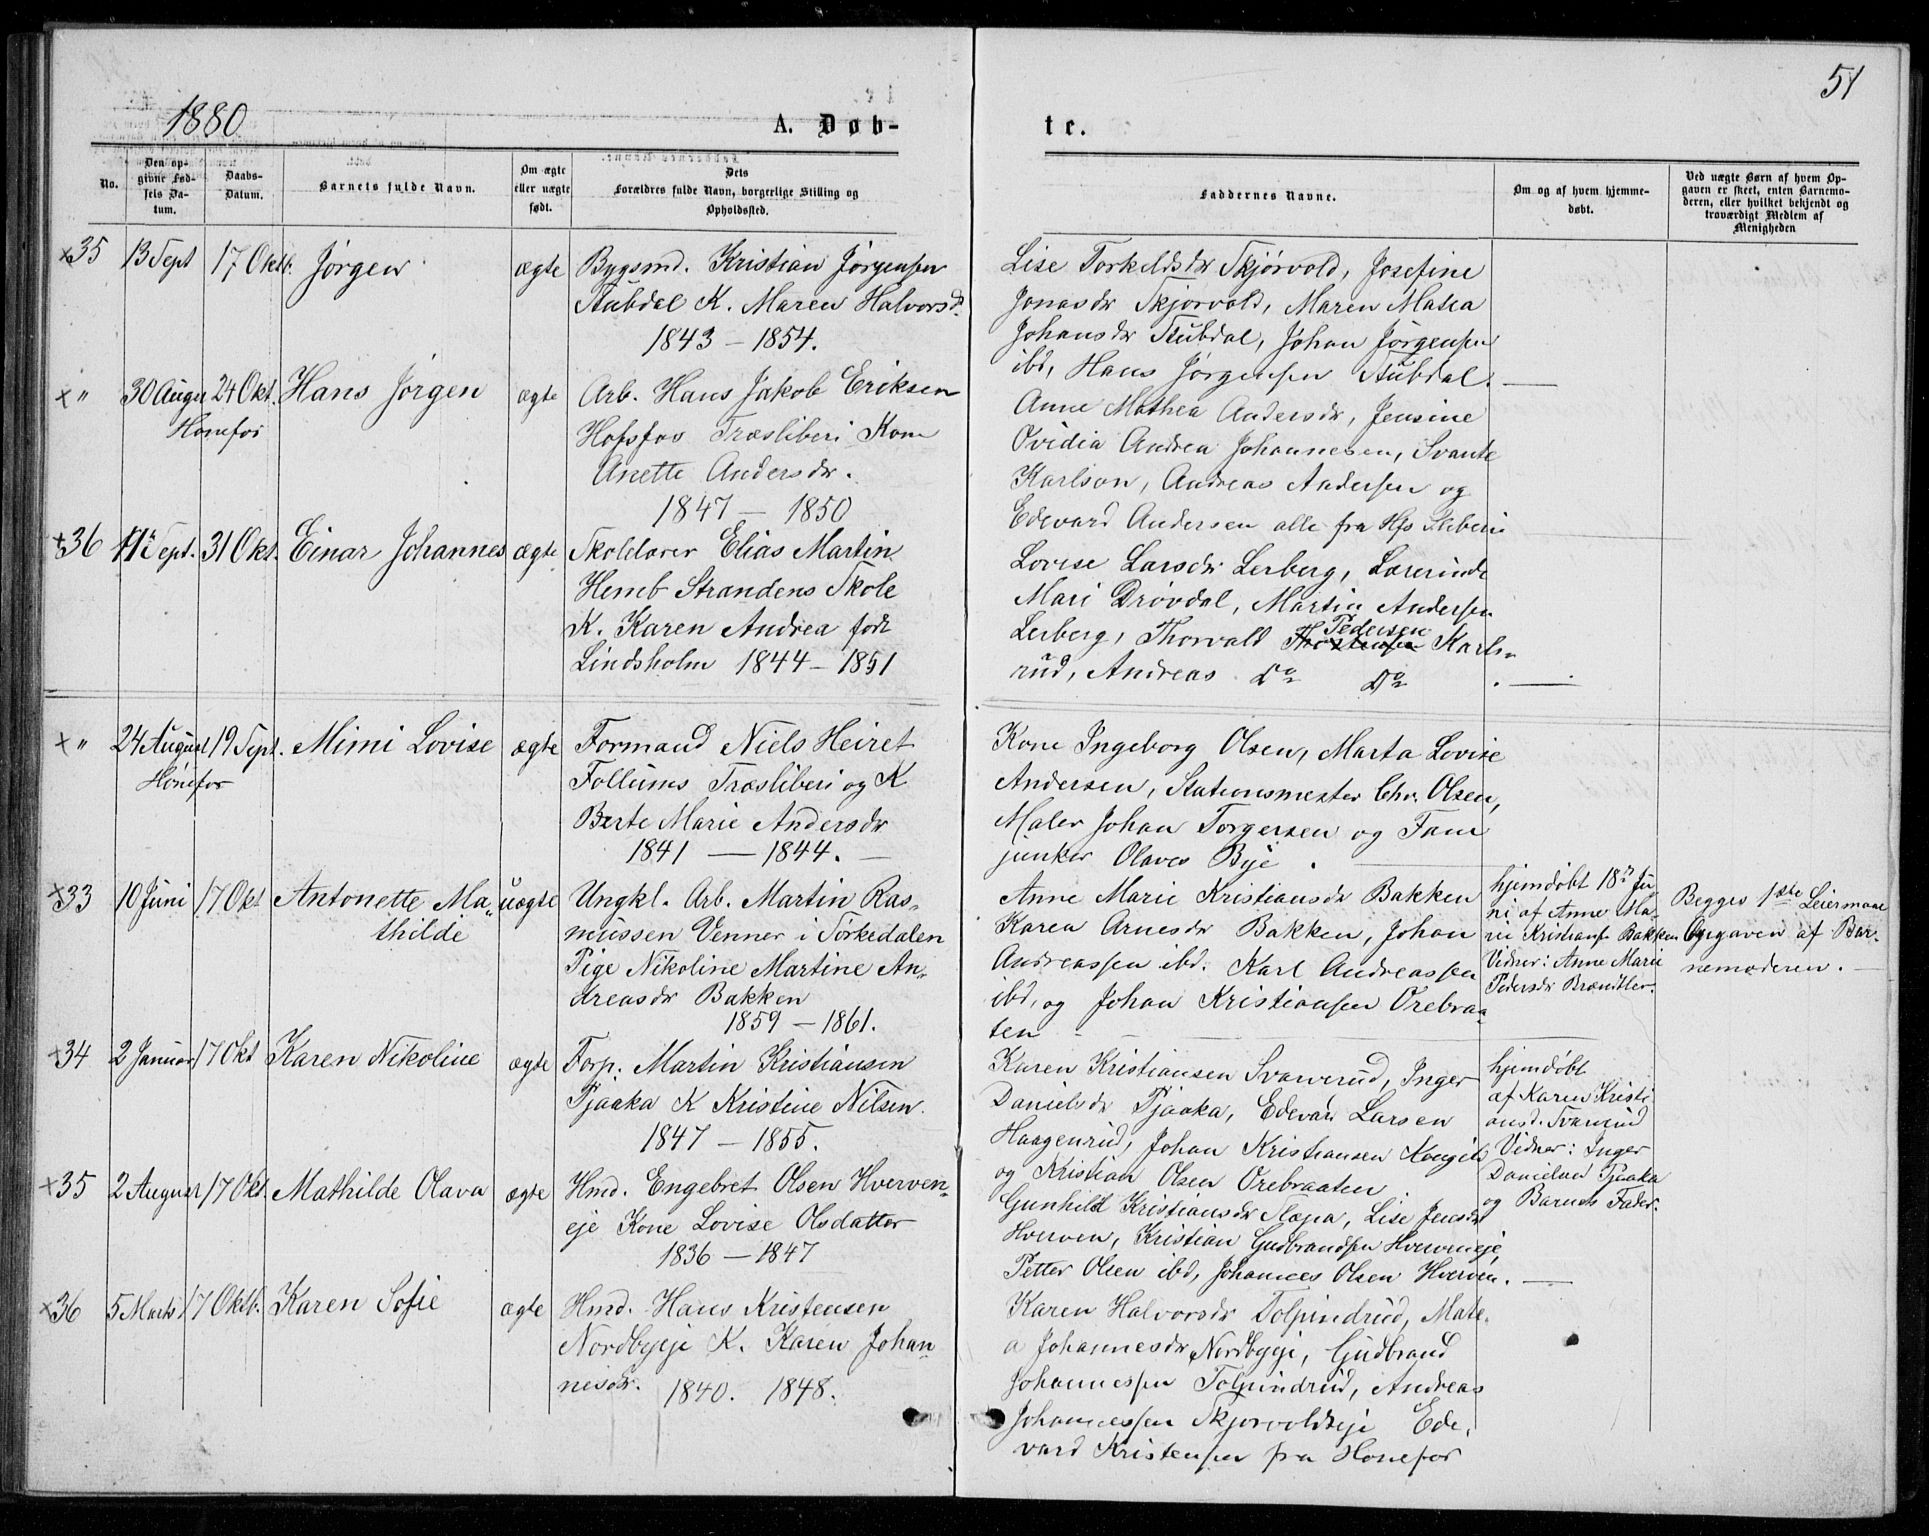 51
1880
A. Døb-
te.
No.
Den op-
givne Fød-
sels Da-
tum.
Daabs-
Datum.
Barnets fulde Navn.
Om ægte
eller uægte
født.
Dets
Forældres fulde Navn, borgerlige Stilling og
Opholdssted.
Faddernes Navne.
Om og af hvem hjemme-
døbt.
Ved uægte Børn af hvem Op-
gaven er skeet, enten Barnemo-
deren, eller hvilket bekjendt og
troværdigt Medlem af
Menigheden
x35 13 Sept 17 Oktb. Jørgen ægte Bygsmd. Kristian Jørgensen
Stubdal K. Maren Halvorsd.
1843 - 1854.
Lise Torkeldsdr Skjørvold, Josefine
Jonasdr Skjørvold, Maren Matea
Johansdr Stubdal, Johan Jørgensen
ibd, Hans Jørgensen Stubdal.
x " 30 August 24 Okt. Hans Jørgen ægte Arb. Hans Jakob Eriksen
Hønefos
Hofsfos Træsliberi Kone
Anette Andersdr.
1847 - 1850
Anne Mathea Andersdr, Jensine
Ovidia Andrea Johannesen, Svante
Karlson, Andreas Andersen og
Edevard Andersen alle fra Hfs Sliberi
x36 11 Sept. 31 Okt. Einar Johannes ægte Skolelærer Elias Martin
Hemb Strandens Skole
K. Karen Andrea født
Lindsholm 1844 - 1851
Lovise Larsdr Lerberg, Lærerinde
Mari Drøvdal, Martin Andersen
Lerberg, Thorvald Pedersen Karls-
rud, Andreas Do Do
x " 24 August 19 Sept. Mimi Lovise ægte Formand Niels Heiret
Hønefos
Follums Træsliberi og K
Berte Marie Andersdr
1841 - 1844.
Kone Ingeborg Olsen, Marta Lovise
Andersen, Stationsmester Chr. Olsen,
Maler Johan Torgersen og Fam
junker Olaves Bye.
x33 10 Juni 17 Okt Antonette Ma- uægte Ungkl. Arb. Martin Ras-
thilde
mussen Venner i Sørkedalen
Pige Nikoline Martine An-
dreasdr Bakken
1859 - 1861.
Anne Marie Kristiansdr Bakken
Karen Arnesdr Bakken, Johan
Andreassen ibd. Karl Andreassen
ibd, og Johan Kristiansen Orebraa-
ten
hjemdøbt 18d Ju-
ni af Anne Ma-
rie Kristians Bakken
Vidner: Anne Marie
Pedersdr
Begges 1ste Leiermaal
Opgaven af Bar-
nemoderen.
x34 2 Januar 17 Okt Karen Nikoline ægte Forp. Martin Kristiansen
Pjaaka K Kristine Nilsen.
1847 - 1855.
Karen Kristiansen Svarverud, Inger
Danielsdr Pjaaka, Edevard Larsen
Haagenrud, Johan Kristiansen
og Kristian Olsen Orebraaten
hjemdøbt
af Karen Kristi
ansd. Svarverud
Vidner: Inger
Danielsd Pjaaka
og Barnets Fader.
x35 2 August 17 Okt. Mathilde Olava ægte Hmd. Engebret Olsen Hverven-
eje Kone Lovise Olsdatter
1836 - 1847
Gunhild Kristiansdr Slæpa, Lise Jensdr
Hverven, Kristian Gudbrandsen Hverveneje,
Petter Olsen ibd, Johannes Olsen Hverven.
x36 5 Marts 17 Oktb. Karen Sofie ægte Hmd. Hans Kristensen
Nordbyeje K. Karen Johan-
nesdr. 1840. 1848.
Karen Halvorsdr Tolpindrud, Mate-
a Johannesdr Nordbyeje, Gudbrand
Johannessen Tolpindrud, Andreas
Johannessen Skjørvoldseje Ede-
vard Kristensen fra Hønefos